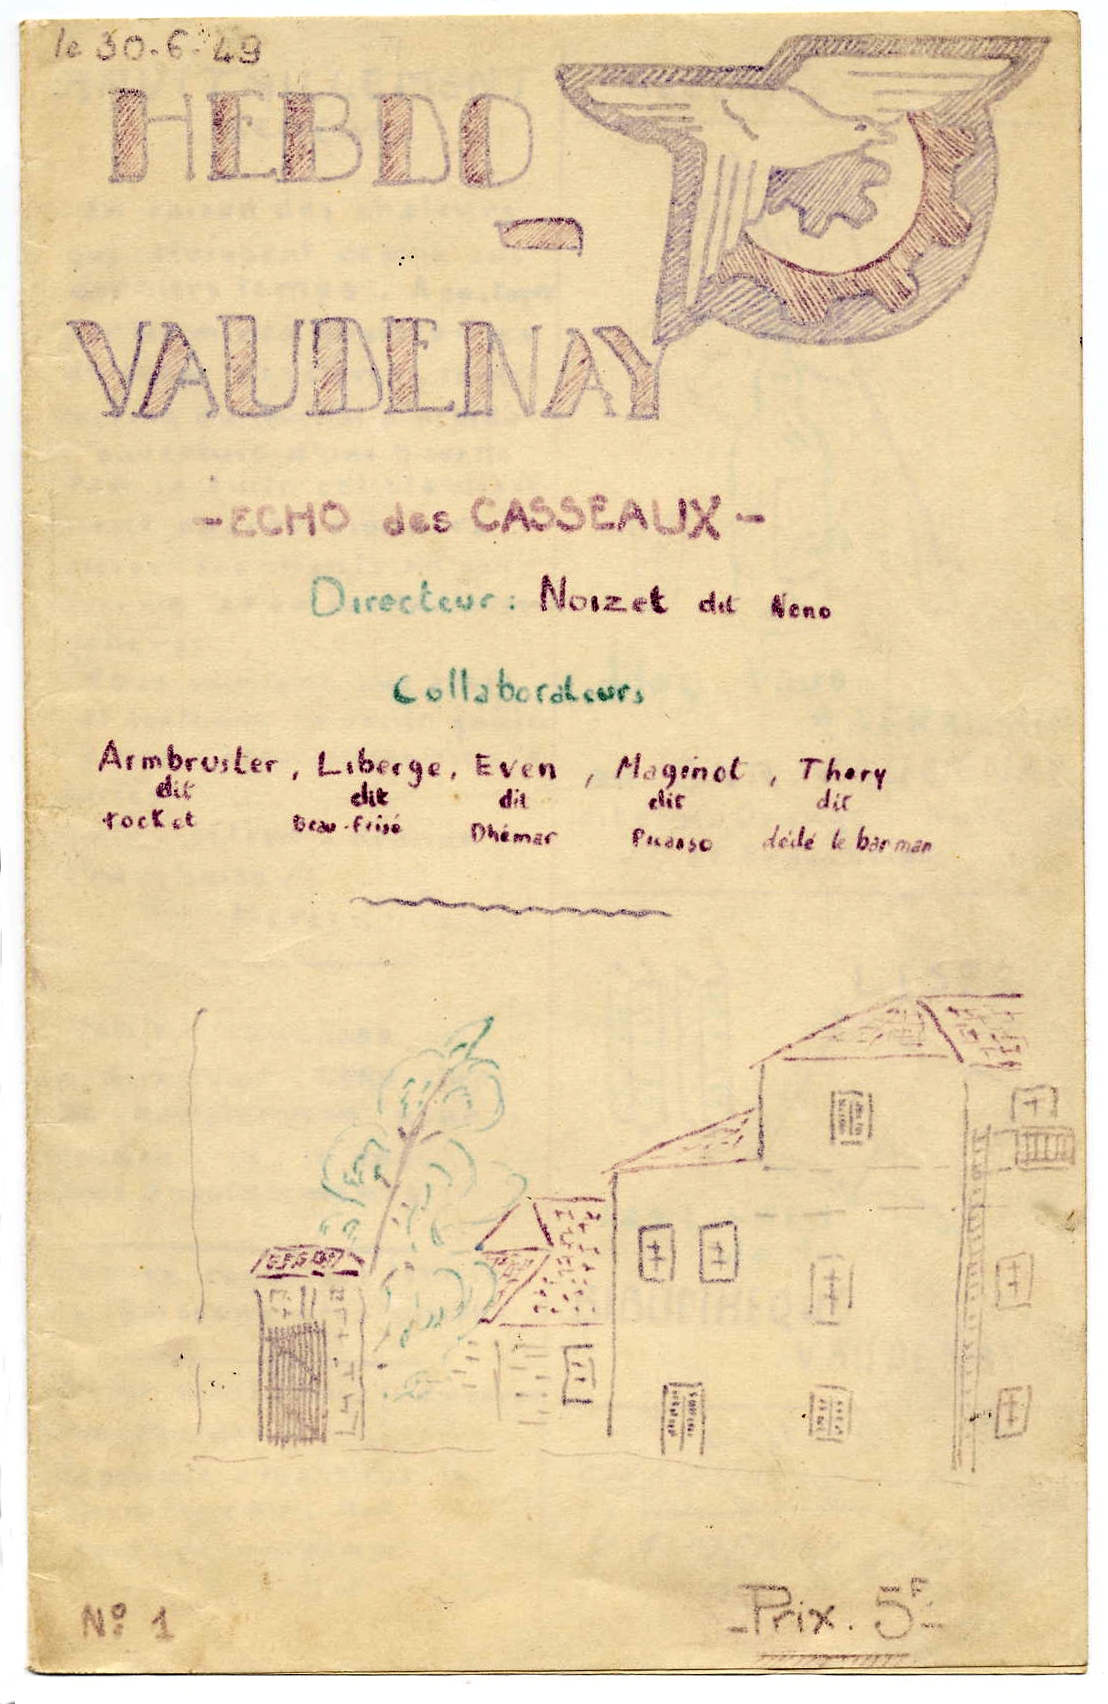 le 30-6-49
HEBDO
-
VAUDENAY
- ECHO des CASSEAUX -
Directeur : Noizet dit Neno
Collaborateurs
Armbruster, Liberge, Even, Maginot, Thery
dit dit dit dit dit
rocket Beau-Frisé Dhémar Picasso dédé le barman
N° 1
- Prix. 5F -